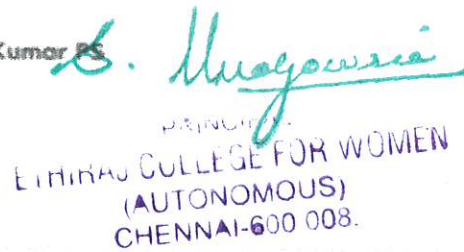 Kumar PS
S.
PRINCIPAL
ETHIRAJ COLLEGE FOR WOMEN
(AUTONOMOUS)
CHENNAI-600 008.